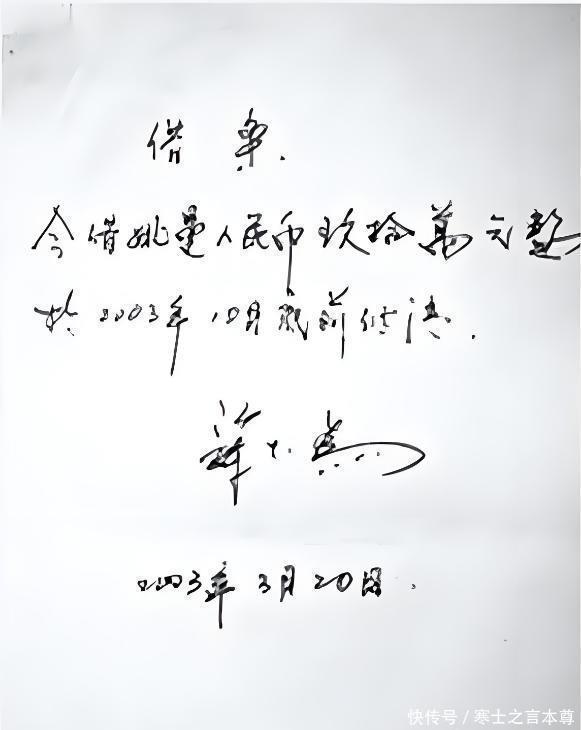 借票.
今借姚曼人民币玖拾萬元整
於2003年10月底前付清.
2003年3月20日.
快传号／寒士之言本尊